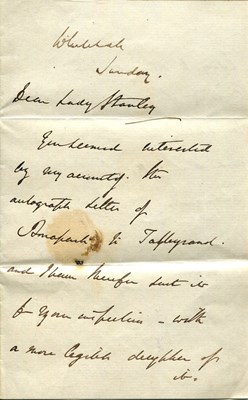 Sunday.
Dear Lady Stanley
You seemed interested
by my account of the
autograph letter of
Bonaparte to Talleyrand.
and I have therefore sent it
for your inspection - with
a more legible decypher of
it.